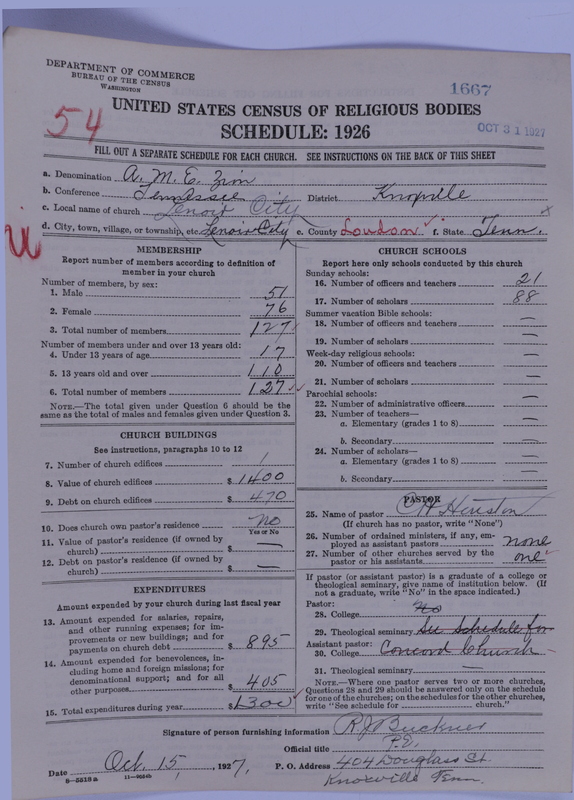 DEPARTMENT OF COMMERCE
BUREAU OF THE CENSUS
WASHINGTON
1667
54
UNITED STATES CENSUS OF RELIGIOUS BODIES
SCHEDULE: 1926
OCT 31 1927
FILL OUT A SEPARATE SCHEDULE FOR EACH CHURCH. SEE INSTRUCTIONS ON THE BACK OF THIS SHEET
a. Denomination A. M. E. Zion
b. Conference Tennessee District Knoxville
c. Local name of church Lenoir City
d. City, town, village, or township, etc. Lenoir City e. County Loudon f. State Tenn.
MEMBERSHIP
Report number of members according to definition of
member in your church
Number of members, by sex:
1. Male 51
2. Female 76
3. Total number of members 127
Number of members under and over 13 years old:
4. Under 13 years of age 17
5. 13 years old and over 110
6. Total number of members 127
NOTE.—The total given under Question 6 should be the
same as the total of males and females given under Question 3.
CHURCH BUILDINGS
See instructions, paragraphs 10 to 12
7. Number of church edifices 1
8. Value of church edifices $1400
9. Debt on church edifices $ 470
10. Does church own pastor's residence no
Yes or No
11. Value of pastor's residence (if owned by
church) $ —
12. Debt on pastor's residence (if owned by
church) $ —
EXPENDITURES
Amount expended by your church during last fiscal year
13. Amount expended for salaries, repairs,
and other running expenses; for im-
provements or new buildings; and for
payments on church debt $ 895
14. Amount expended for benevolences, in-
cluding home and foreign missions; for
denominational support; and for all
other purposes $ 405
15. Total expenditures during year $1300
CHURCH SCHOOLS
Report here only schools conducted by this church
Sunday schools:
16. Number of officers and teachers 21
17. Number of scholars 88
Summer vacation Bible schools:
18. Number of officers and teachers —
19. Number of scholars —
Week-day religious schools:
20. Number of officers and teachers —
21. Number of scholars —
Parochial schools:
22. Number of administrative officers —
23. Number of teachers—
a. Elementary (grades 1 to 8) —
b. Secondary —
24. Number of scholars—
a. Elementary (grades 1 to 8) —
b. Secondary —
PASTOR
25. Name of pastor Houston
(If church has no pastor, write "None")
26. Number of ordained ministers, if any, em-
ployed as assistant pastors none
27. Number of other churches served by the
pastor or his assistants one
If pastor (or assistant pastor) is a graduate of a college or
theological seminary, give name of institution below. (If
not a graduate, write "No" in the space indicated.)
Pastor:
28. College No
29. Theological seminary See Schedule for
Assistant pastor:
30. College Concord Church
31. Theological seminary —
NOTE.—Where one pastor serves two or more churches,
Questions 28 and 29 should be answered only on the schedule
for one of the churches; on the schedules for the other churches,
write "See schedule for church."
Signature of person furnishing information R. J. Buckner
Official title P.E.
Date Oct. 15, 1927. P. O. Address 404 Douglass St.
Knoxville Tenn.
8—5518a 11—9054b